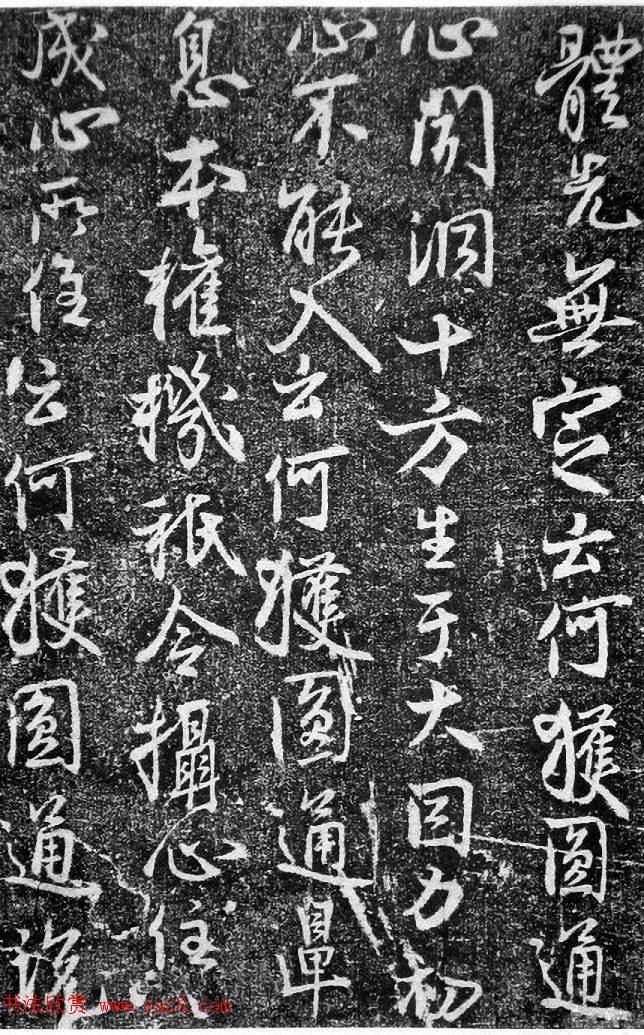 體先無定云何獲圓通
心聞洞十方生于大因力初
心不能入云何獲圓通鼻
息本權機祇令攝心住
成心所住云何獲圓通說
书法欣赏 www.yac8.com